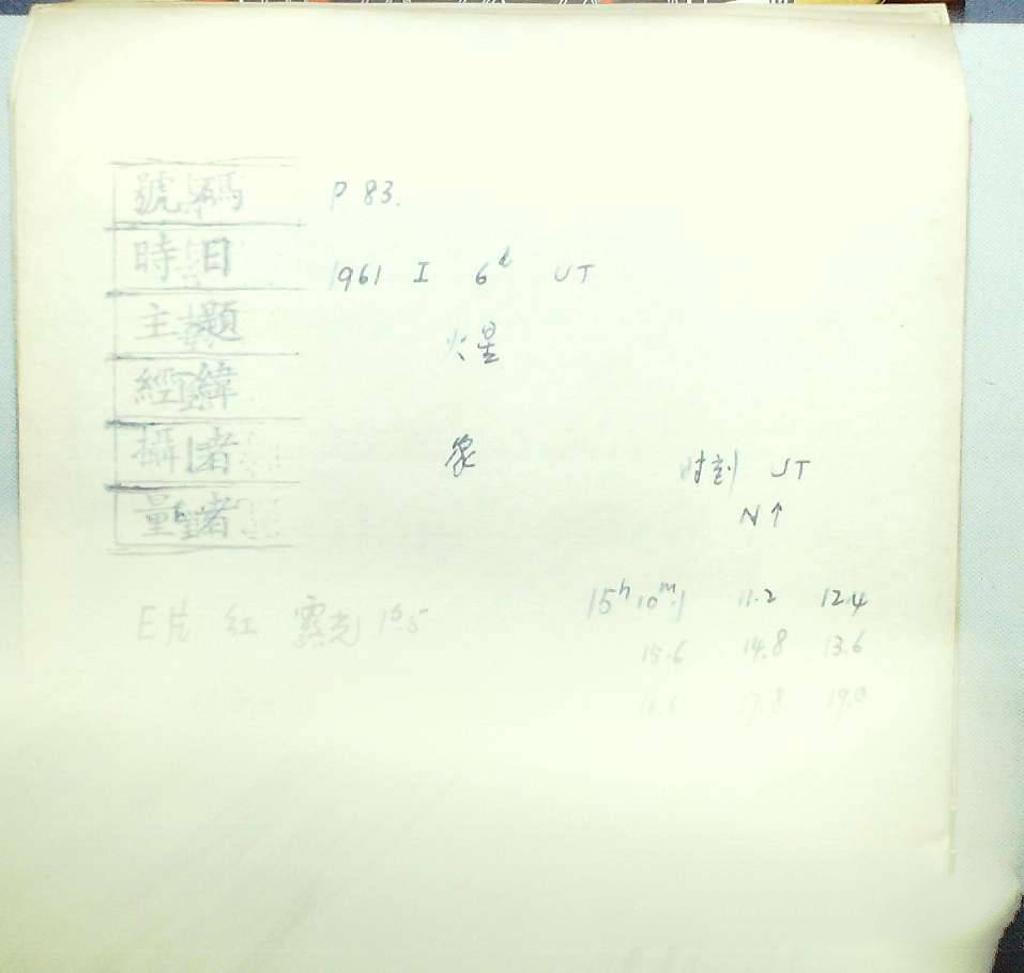 號碼 P 83.
時日 1961 I 6d UT
主題 火星
經緯
攝者
时刻 UT
量者
N↑
E片 红 露光 1s.5
15h 10m.1 11.2 12.4
15.6 14.8 13.6
17.8 19.0